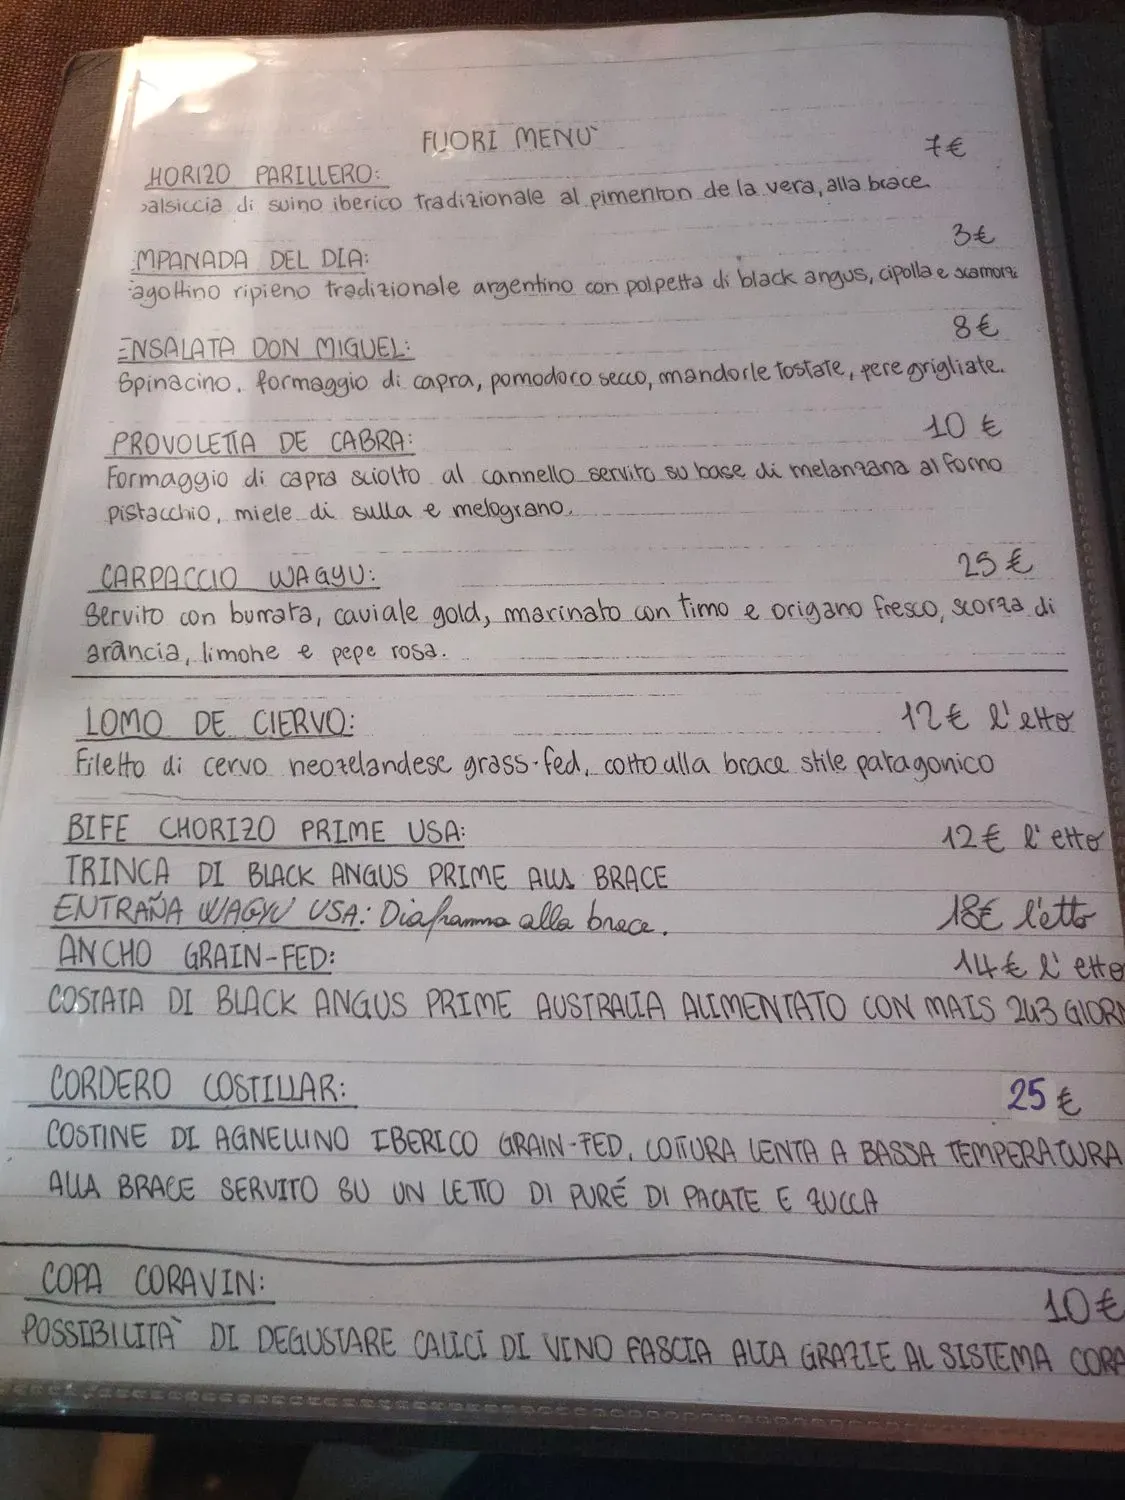 FUORI MENU`
7€
HORIZO PARILLERO:
salsiccia di suino iberico tradizionale al pimenton de la vera, alla brace.
3€
MPANADA DEL DIA:
agottino ripieno tradizionale argentino con polpetta di black angus, cipolla e scamorz
8€
ENSALATA DON MIGUEL:
Spinacino, formaggio di capra, pomodoro secco, mandorle tostate, pere grigliate.
10 €
PROVOLETTA DE CABRA:
Formaggio di capra sciolto al cannello servito su base di melanzana al forno
pistacchio, miele di sulla e melograno.
25 €
CARPACCIO WAGYU:
Servito con burrata, caviale gold, marinato con timo e origano fresco, scorza di
arancia, limone e pepe rosa.
LOMO DE CIERVO: 12€ l'etto
Filetto di cervo neozelandese grass-fed, cotto alla brace stile patagonico
BIFE CHORIZO PRIME USA: 12€ l'etto
TRINCA DI BLACK ANGUS PRIME ALLA BRACE
ENTRAÑA WAGYU USA: Diaframma alla brace. 18€ l'etto
ANCHO GRAIN-FED: 14€ l'etto
COSTATA DI BLACK ANGUS PRIME AUSTRALIA ALIMENTATO CON MAIS 243 GIORN
CORDERO COSTILLAR: 25 €
COSTINE DI AGNELLINO IBERICO GRAIN-FED, COTTURA LENTA A BASSA TEMPERATURA
ALLA BRACE SERVITO SU UN LETTO DI PURÉ DI PATATE E ZUCCA
COPA CORAVIN: 10€
POSSIBILITA` DI DEGUSTARE CALICI DI VINO FASCIA ALTA GRAZIE AL SISTEMA CORA